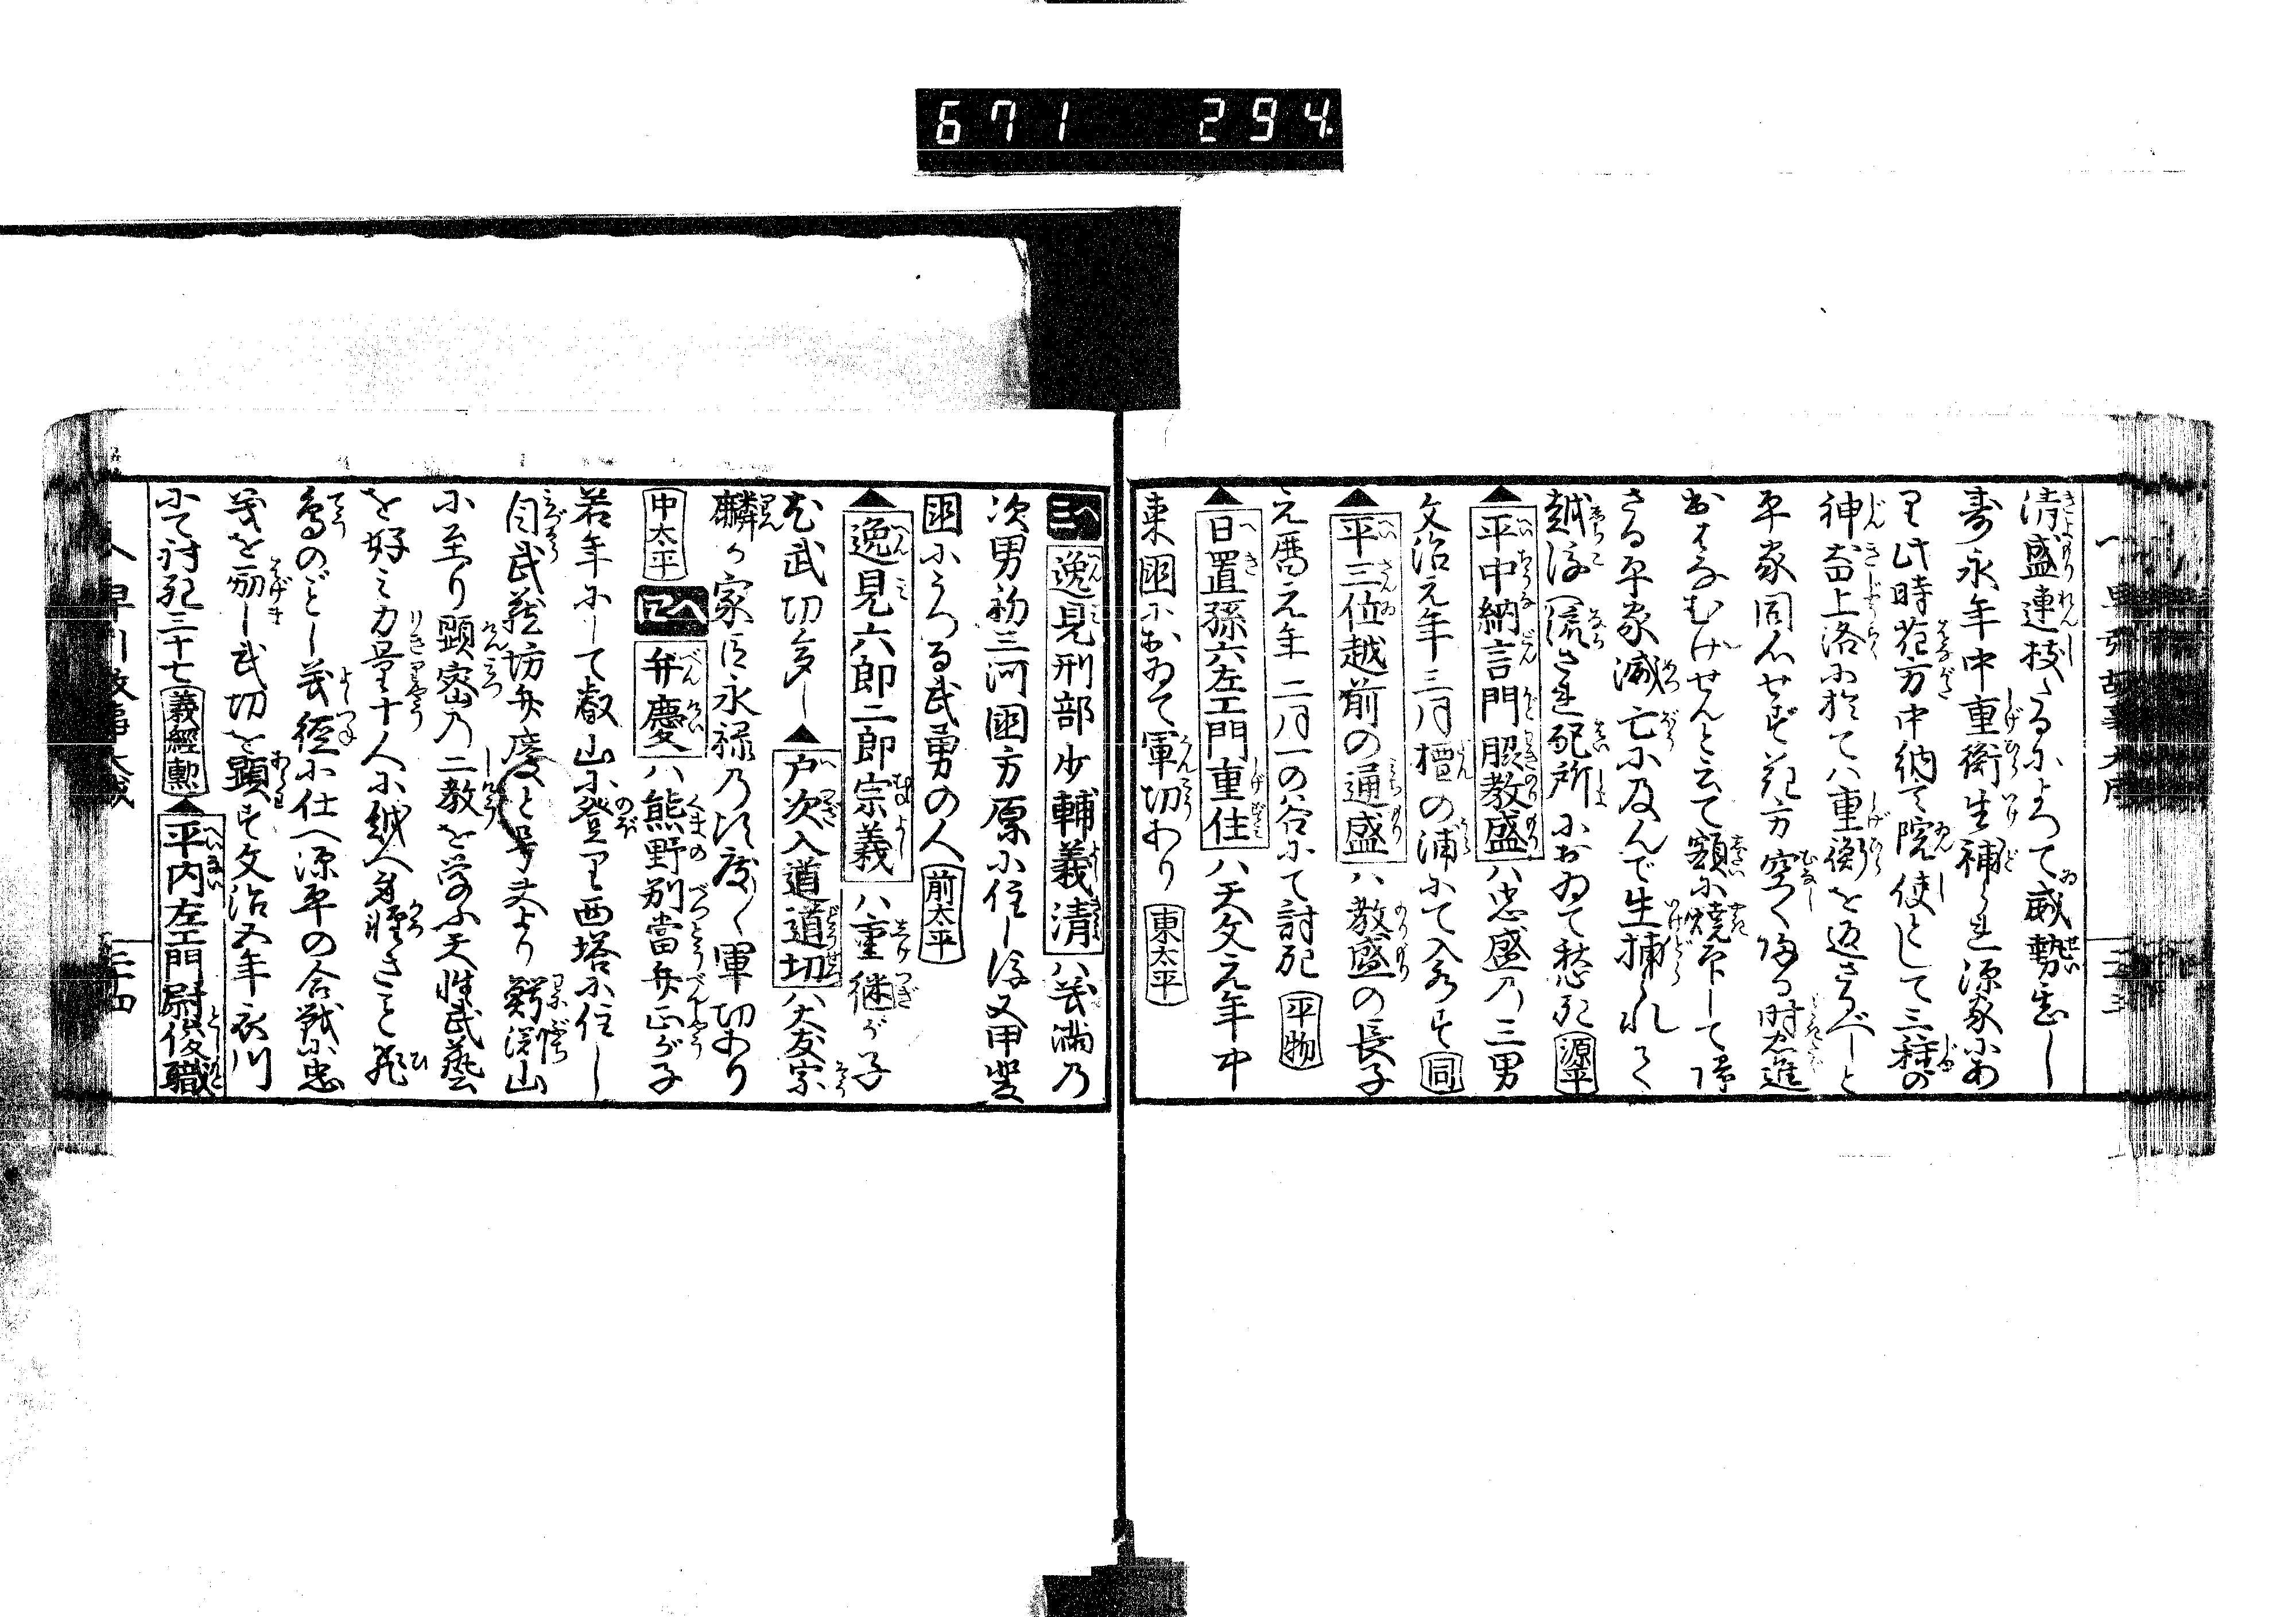 671 294
清盛連枝たるによつて威勢をましし
寿永年中重衡生捕られ源家にあ
り此時花方中納て院使として三種の
神器上洛に於てハ重衡を返さるべしと
平家同心せず花方空く帰る時忠進
おもむけせんと云て額に焼印して帰
さる平家滅亡に及んで生捕られて
越後へ流され配所におゐて愁死 源平
▲平中納言門脇教盛ハ忠盛乃三男
文治元年三月檀の浦にて入水す 同
▲平三位越前の通盛ハ教盛の長子
元暦元年二月一の谷にて討死 平物
▲日置孫六左エ門重住ハ天文元年中
東国におゐて軍功あり 東太平
ヘミ 逸見刑部少輔義清ハ義満乃
次男初三河国方原に住し後又甲斐
国にうつる武勇の人 前太平
▲逸見六郎二郎宗義ハ重継が子
尤武功多し ▲戸次入道道切ハ大友宗
麟が家臣永禄乃頃度々軍功あり
中太平 ヘロ 弁慶ハ熊野別當弁正が子
若年にして叡山に登り西塔に住し
自武蔵坊弁慶と号す夫より鰐淵山
に至り顕密乃二教を学ふ天性武藝
を好ミ力量十人に越へ身軽きこと飛
鳥のごとし義經に仕へ源平の合戦に忠
義を励し武功を顕ハす文治五年衣川
にて討死三十七 義經勲 ▲平内左エ門尉俊職